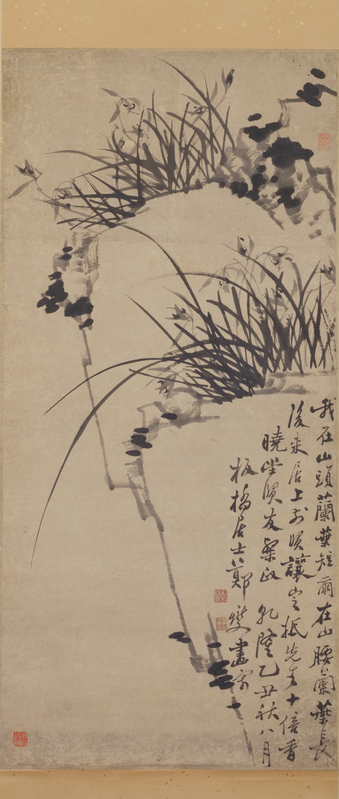 我在山頭蘭葉短爾在山腰蘭葉長
後來居上前賢讓是祇先生十倍香
曉堂賢友粲政乾隆乙丑秋八月
板橋居士鄭燮畫寄